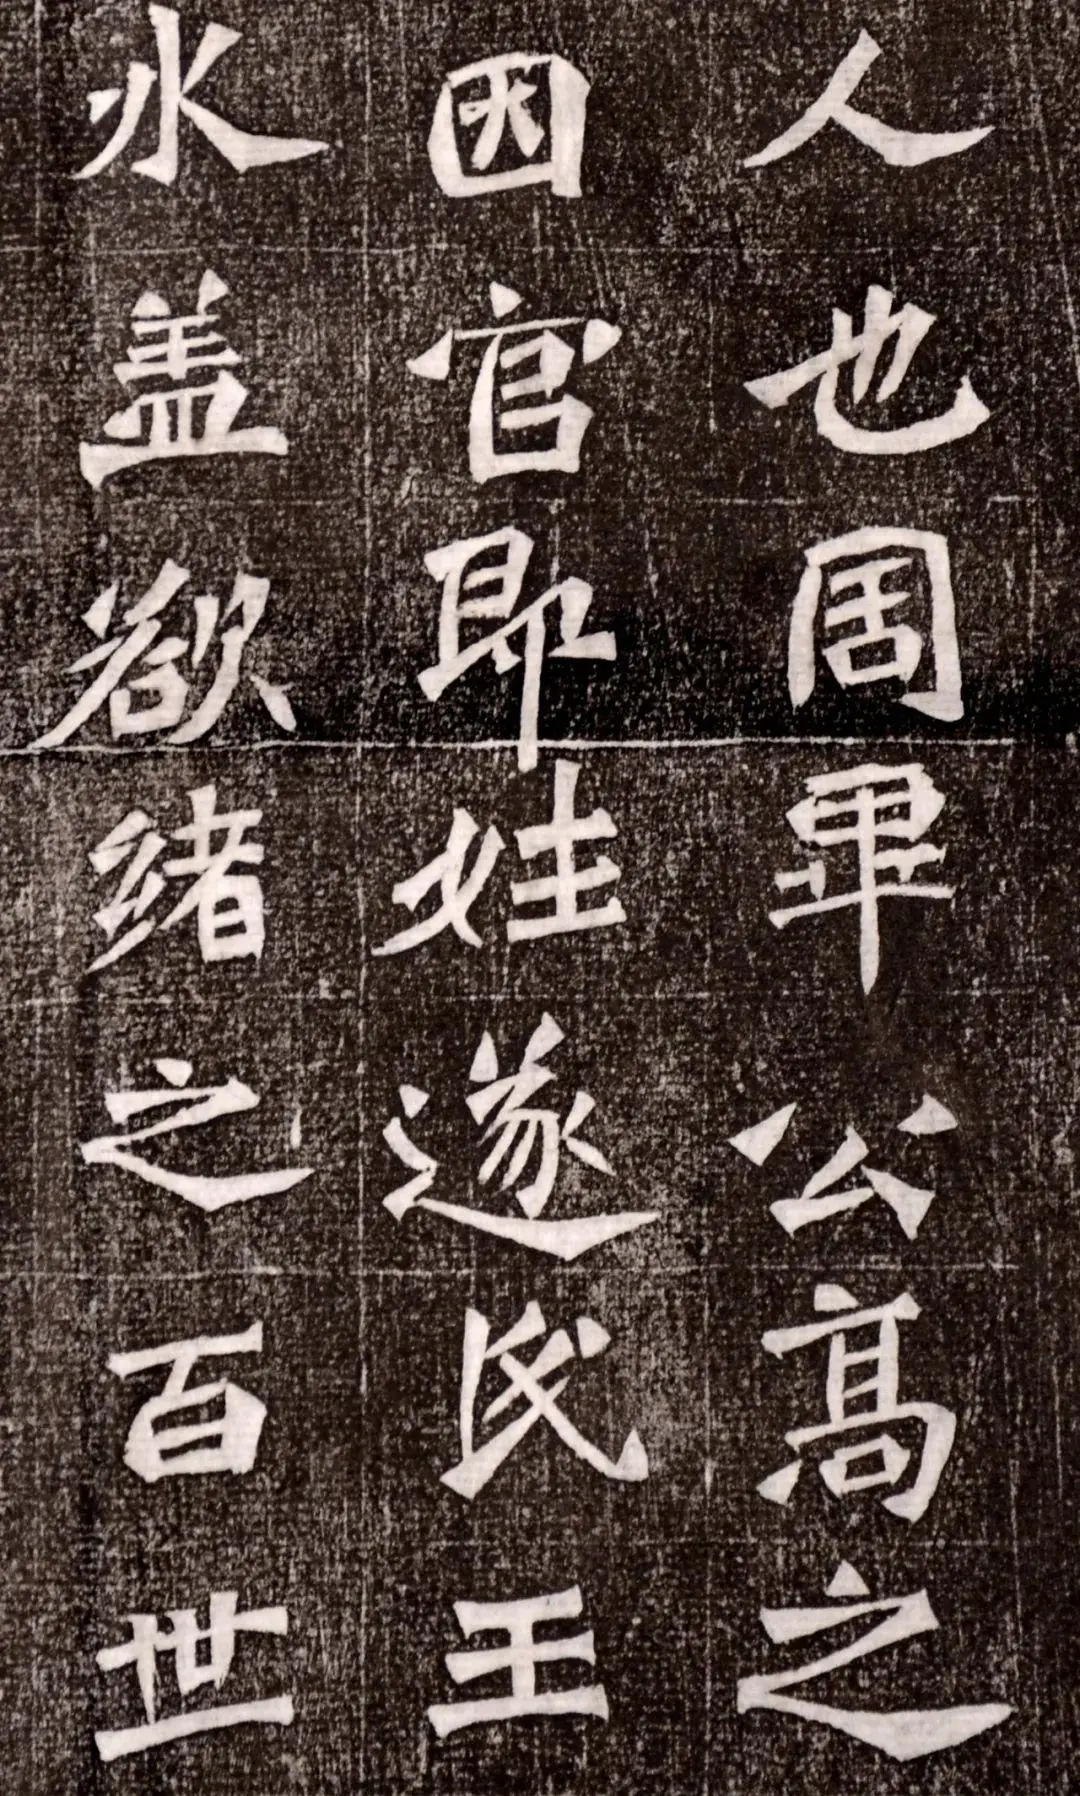 人也周畢公高之
因官即姓遂氏王
水盖欲緒之百世